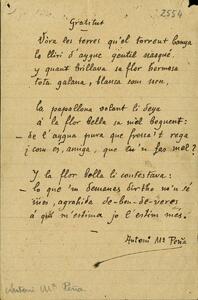 2554
Gratitut
Vora les terres qu'el torrent banya
lo lliri d'aygua gentil nasqué
y quant brillava sa flor hermosa
tota galana, blanca com neu.
la papallona volant li deya
a la flor bella sa mel bebent:
— de l'aygua pura que fresca't rega
¿com es, amiga, que tu'n fas mel?
Y la flor bella li contestava:
— lo que'm demanas dirtho no'n sé
mes, agrahida de-ben-de-veres
á qui m'estima jo l'estim més.
Antoni Mª Peña
Antoni Mª Peña